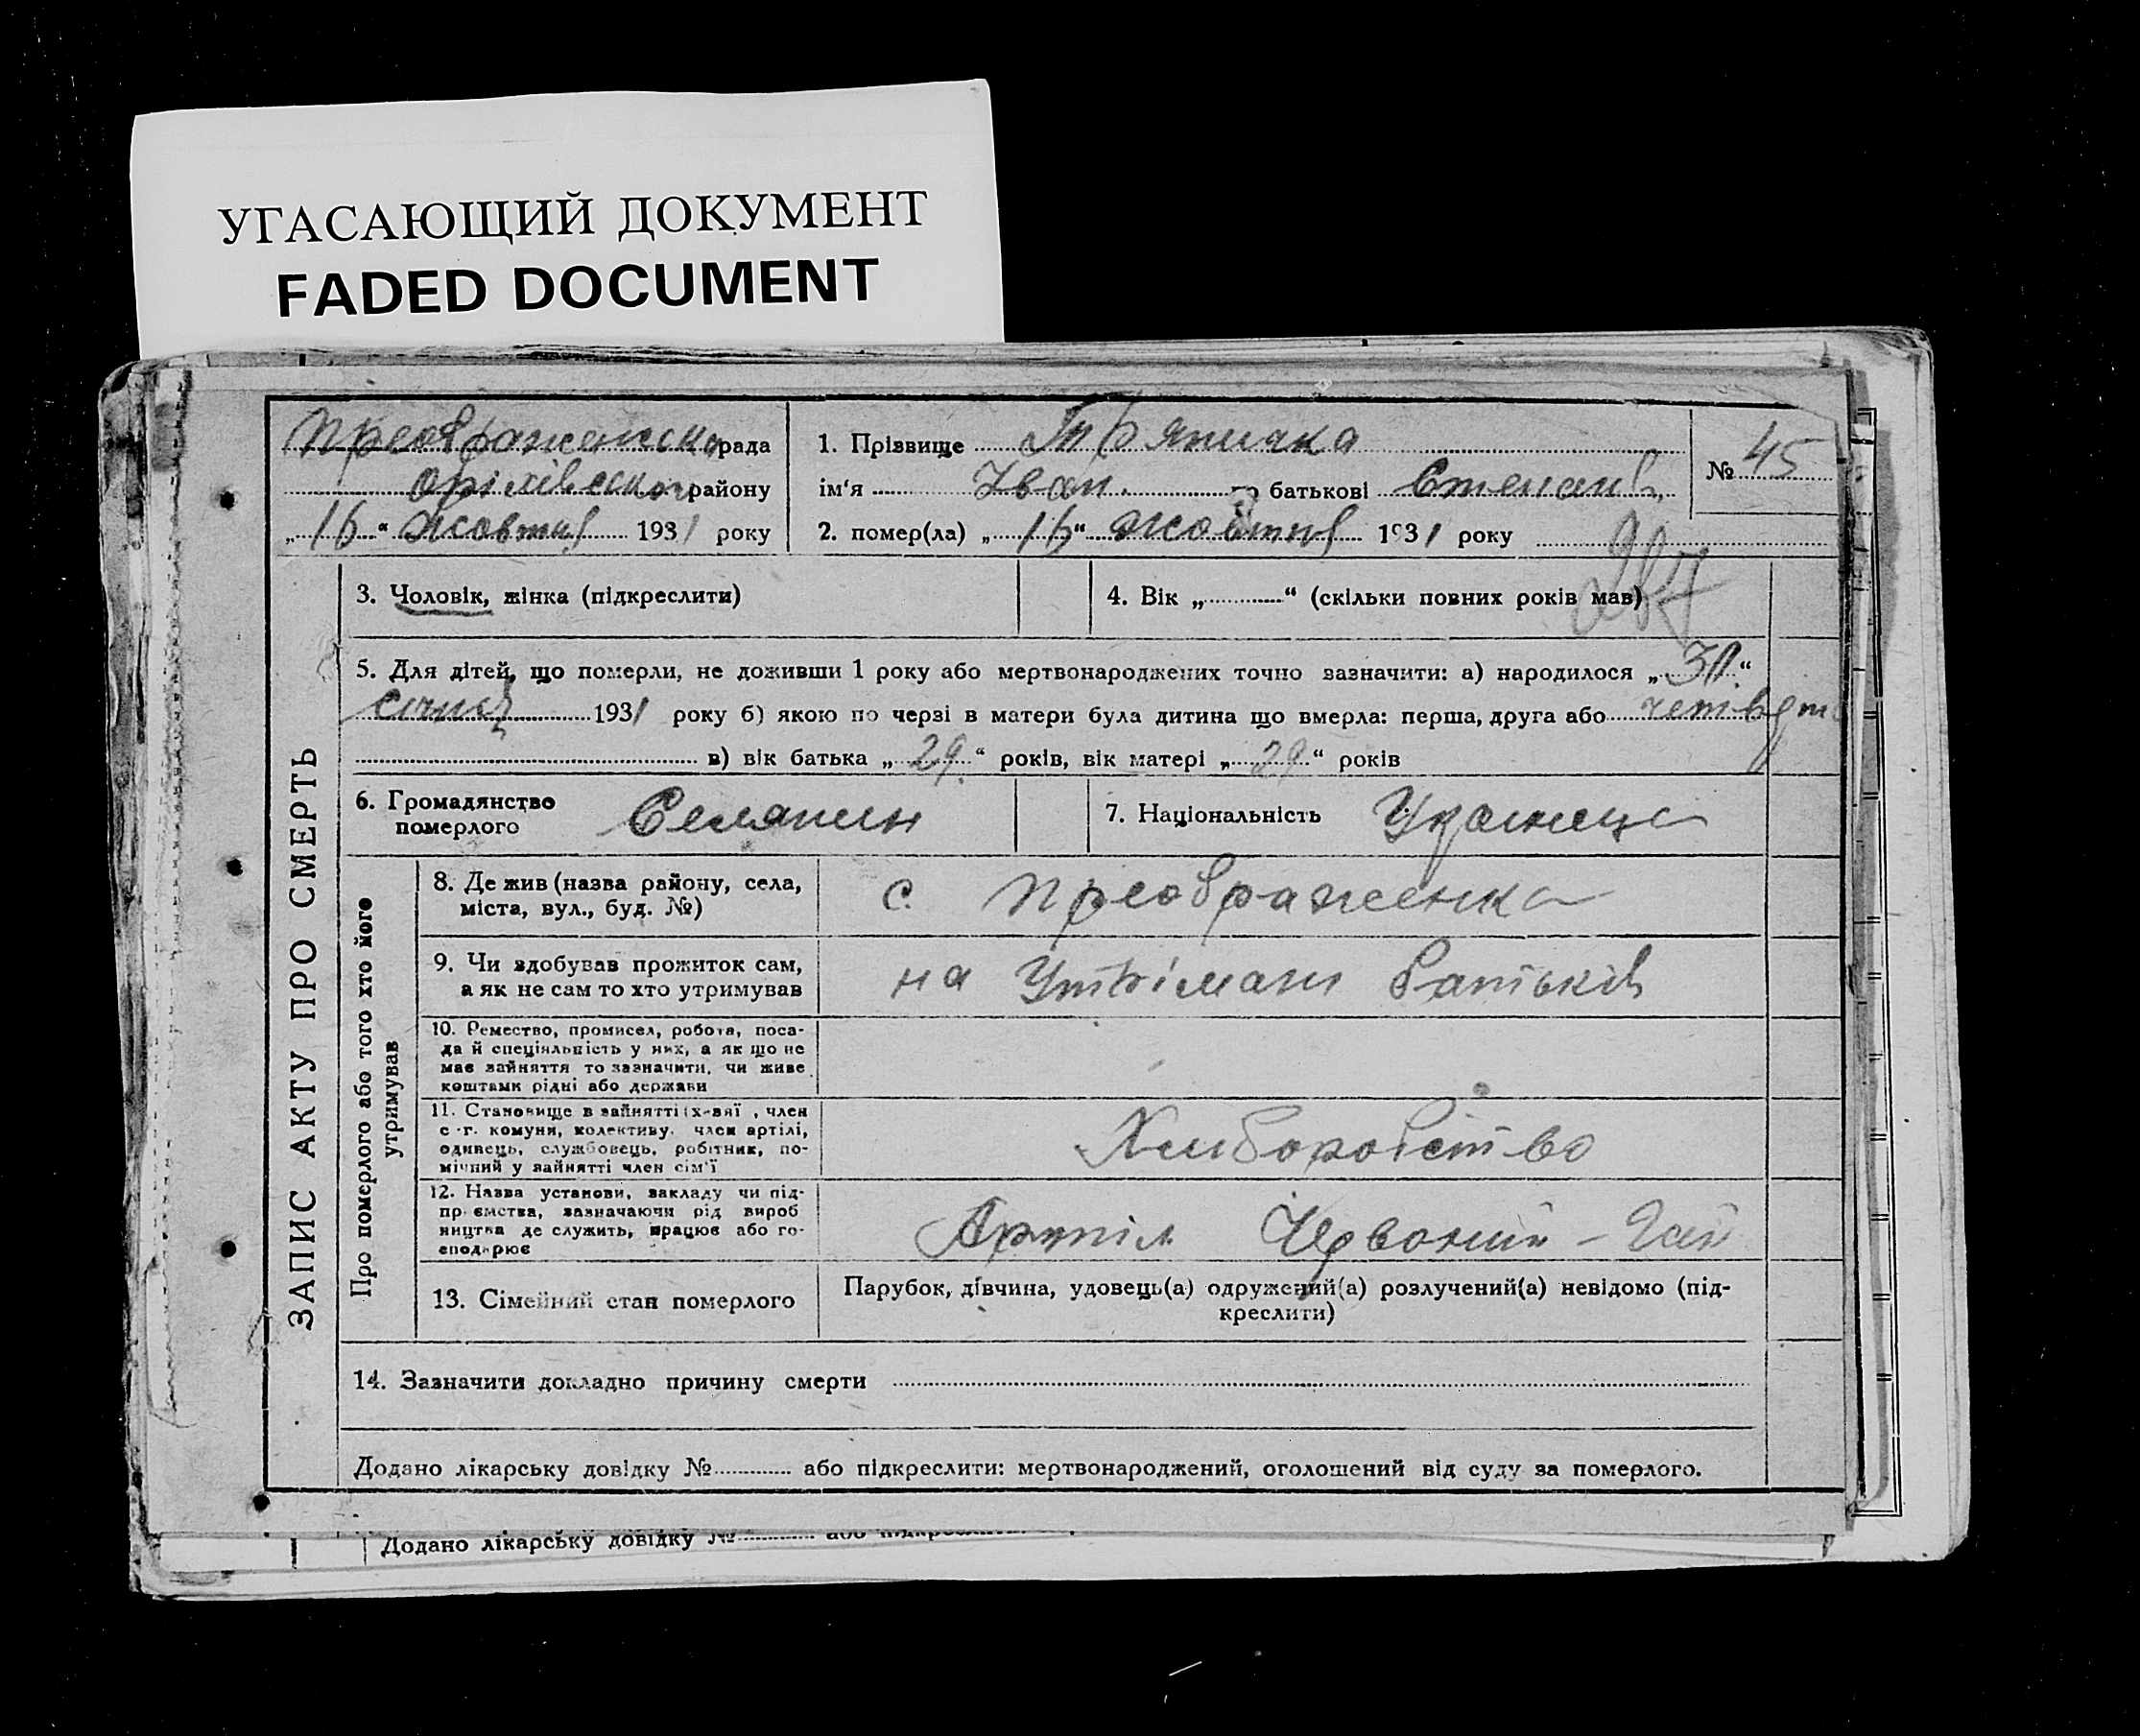 УГАСАЮЩИЙ ДОКУМЕНТ
FADED DOCUMENT
Преображенська рада
Оріхівського району
„16“ жовтня 1931 року
1. Прізвище
ім'я Іван по батькові Степанів
2. помер(ла) „16“ жовтня 1931 року
№ 45
ЗАПИС АКТУ ПРО СМЕРТЬ
3. Чоловік, жінка (підкреслити)
4. Вік „ “ (скільки повних років мав)
5. Для дітей, що померли, не доживши 1 року або мертвонароджених точно зазначити: а) народилося „30“
січня 1931 року б) якою по черзі в матери була дитина що вмерла: перша, друга або
в) вік батька „29“ років, вік матері „29“ років
6. Громадянство
померлого Селянин
7. Національність Українець
Про померлого або того хто його
утримував
8. Де жив (назва району, села,
міста, вул., буд. №)
с. Преображенка
9. Чи здобував прожиток сам,
а як не сам то хто утримував
на Утрімані батьків
10. Ремество, промисел, робота, поса-
да й спеціяльність у них, а як що не
має зайняття то зазначити, чи живе
коштами рідні або держави
11. Становище в зайнятті (х-вяї , член
с.-г. комуни, колективу, член артілі,
одинець, службовець, робітник, по-
мічний у зайнятті член сім'ї
Хліборобство
12. Назва установи, закладу чи під-
приємства, зазначаючи рід вироб
ництва де служить, працює або го-
сподарює
Артіль Червоний - Гай
13. Сімейний стан померлого
Парубок, дівчина, удовець(а) одружений(а) розлучений(а) невідомо (під-
креслити)
14. Зазначити докладно причину смерти
Додано лікарську довідку № або підкреслити: мертвонароджений, оголошений від суду за померлого.
Додано лікарську довідку №